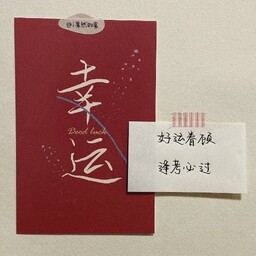 幸
Good luck
运
好运眷顾
逢考必过